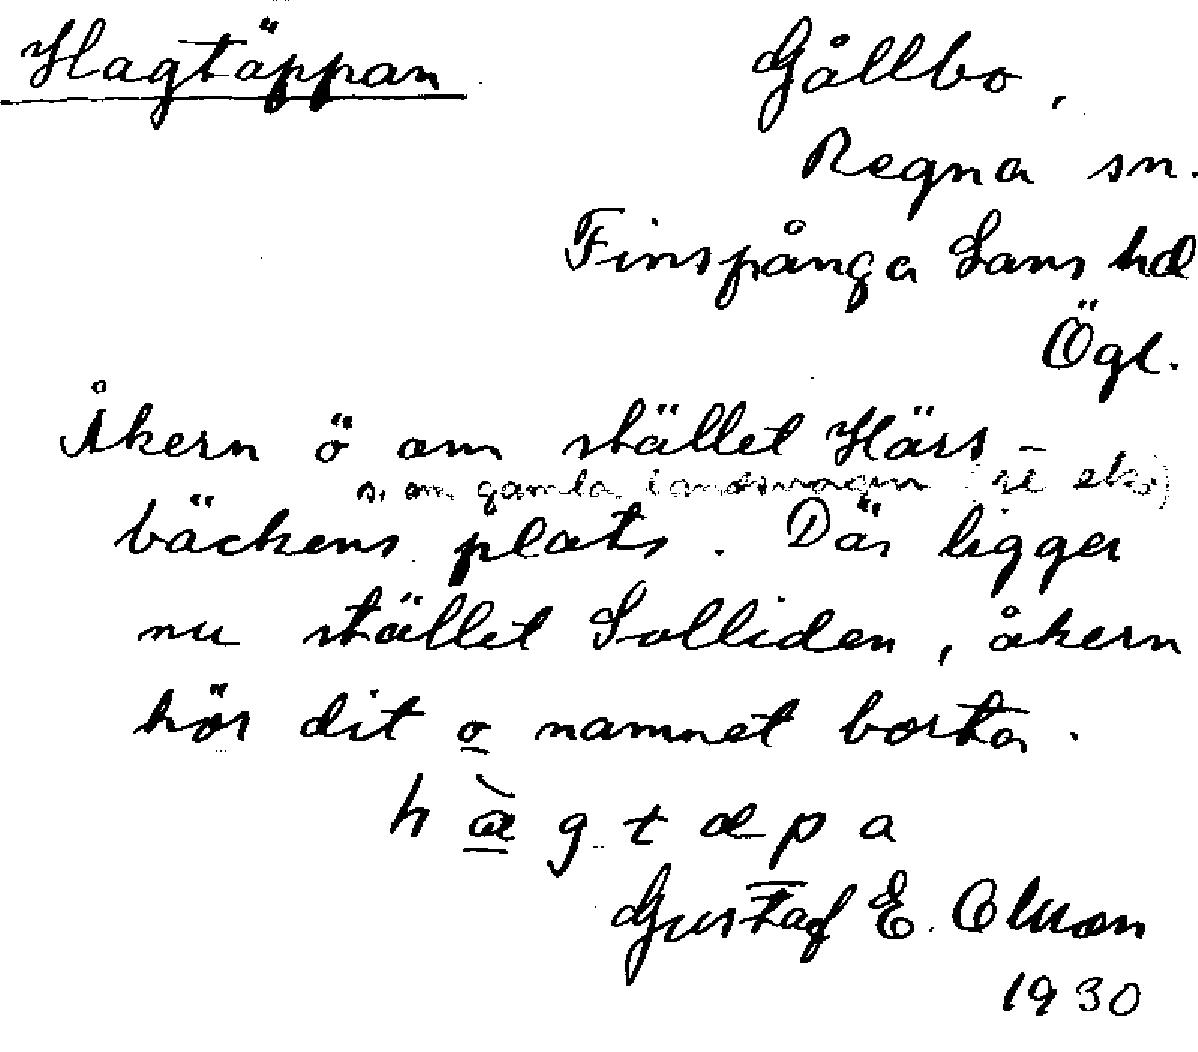 Hagtäppan
Gållbo,
Regna sn.
Finspånga Läns hd
Ögl.
Åkern ö om stället Härs-
s. om gamla landsvägen (se ek.)
bäckens plats. Där ligger
nu stället Solliden, åkern
hör dit o namnet borta.
h a g t æ p a
Gustaf E. Olsson
1930